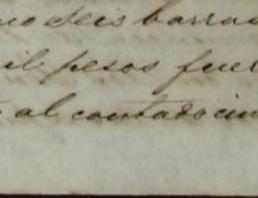 no seis barras
il pesos fuer
al contado cin